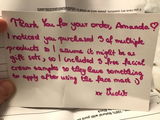 Thank you for your order, Amanda ♡
I noticed you purchased 3 of multiple
products so I assume it might be a
gift set, so I included 3 free facial
cream samples so they have something
to apply after using the face mask :)
xx